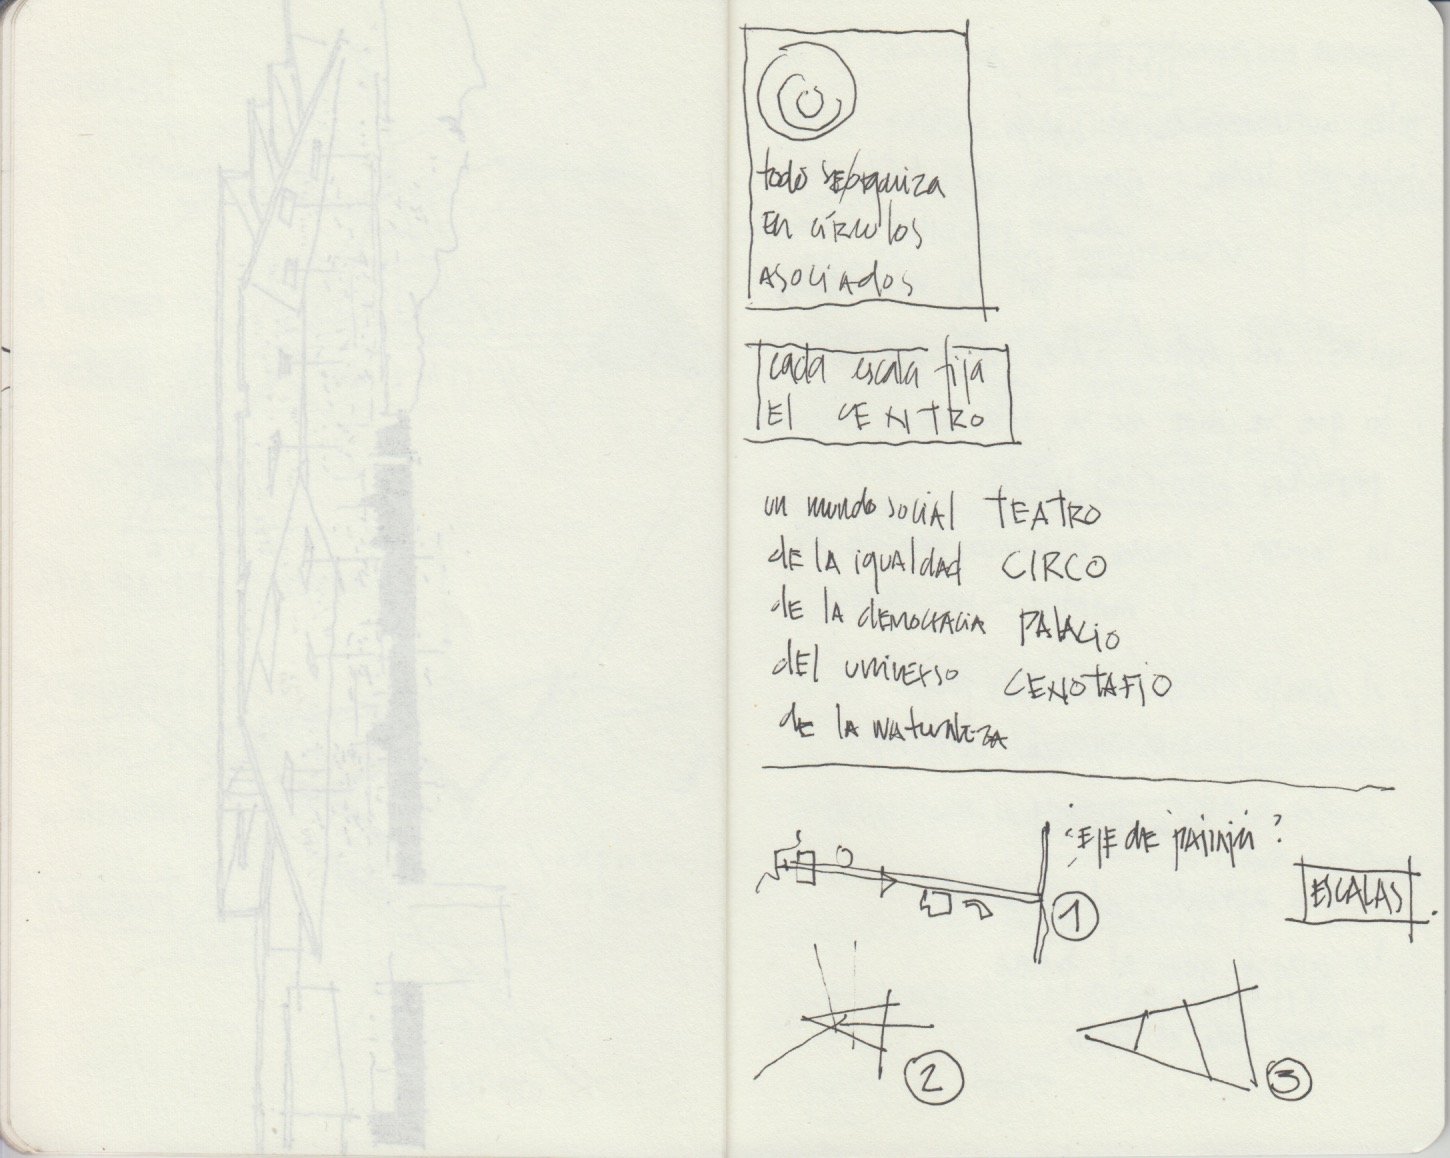 todo se organiza
En círculos
asociados
cada escala fija
El CENTRO
un mundo social TEATRO
de la igualdad CIRCO
de la democracia PALACIO
del universo CENOTAFIO
de la naturaleza
¿EJE de ?
ESCALAS
1
2
3